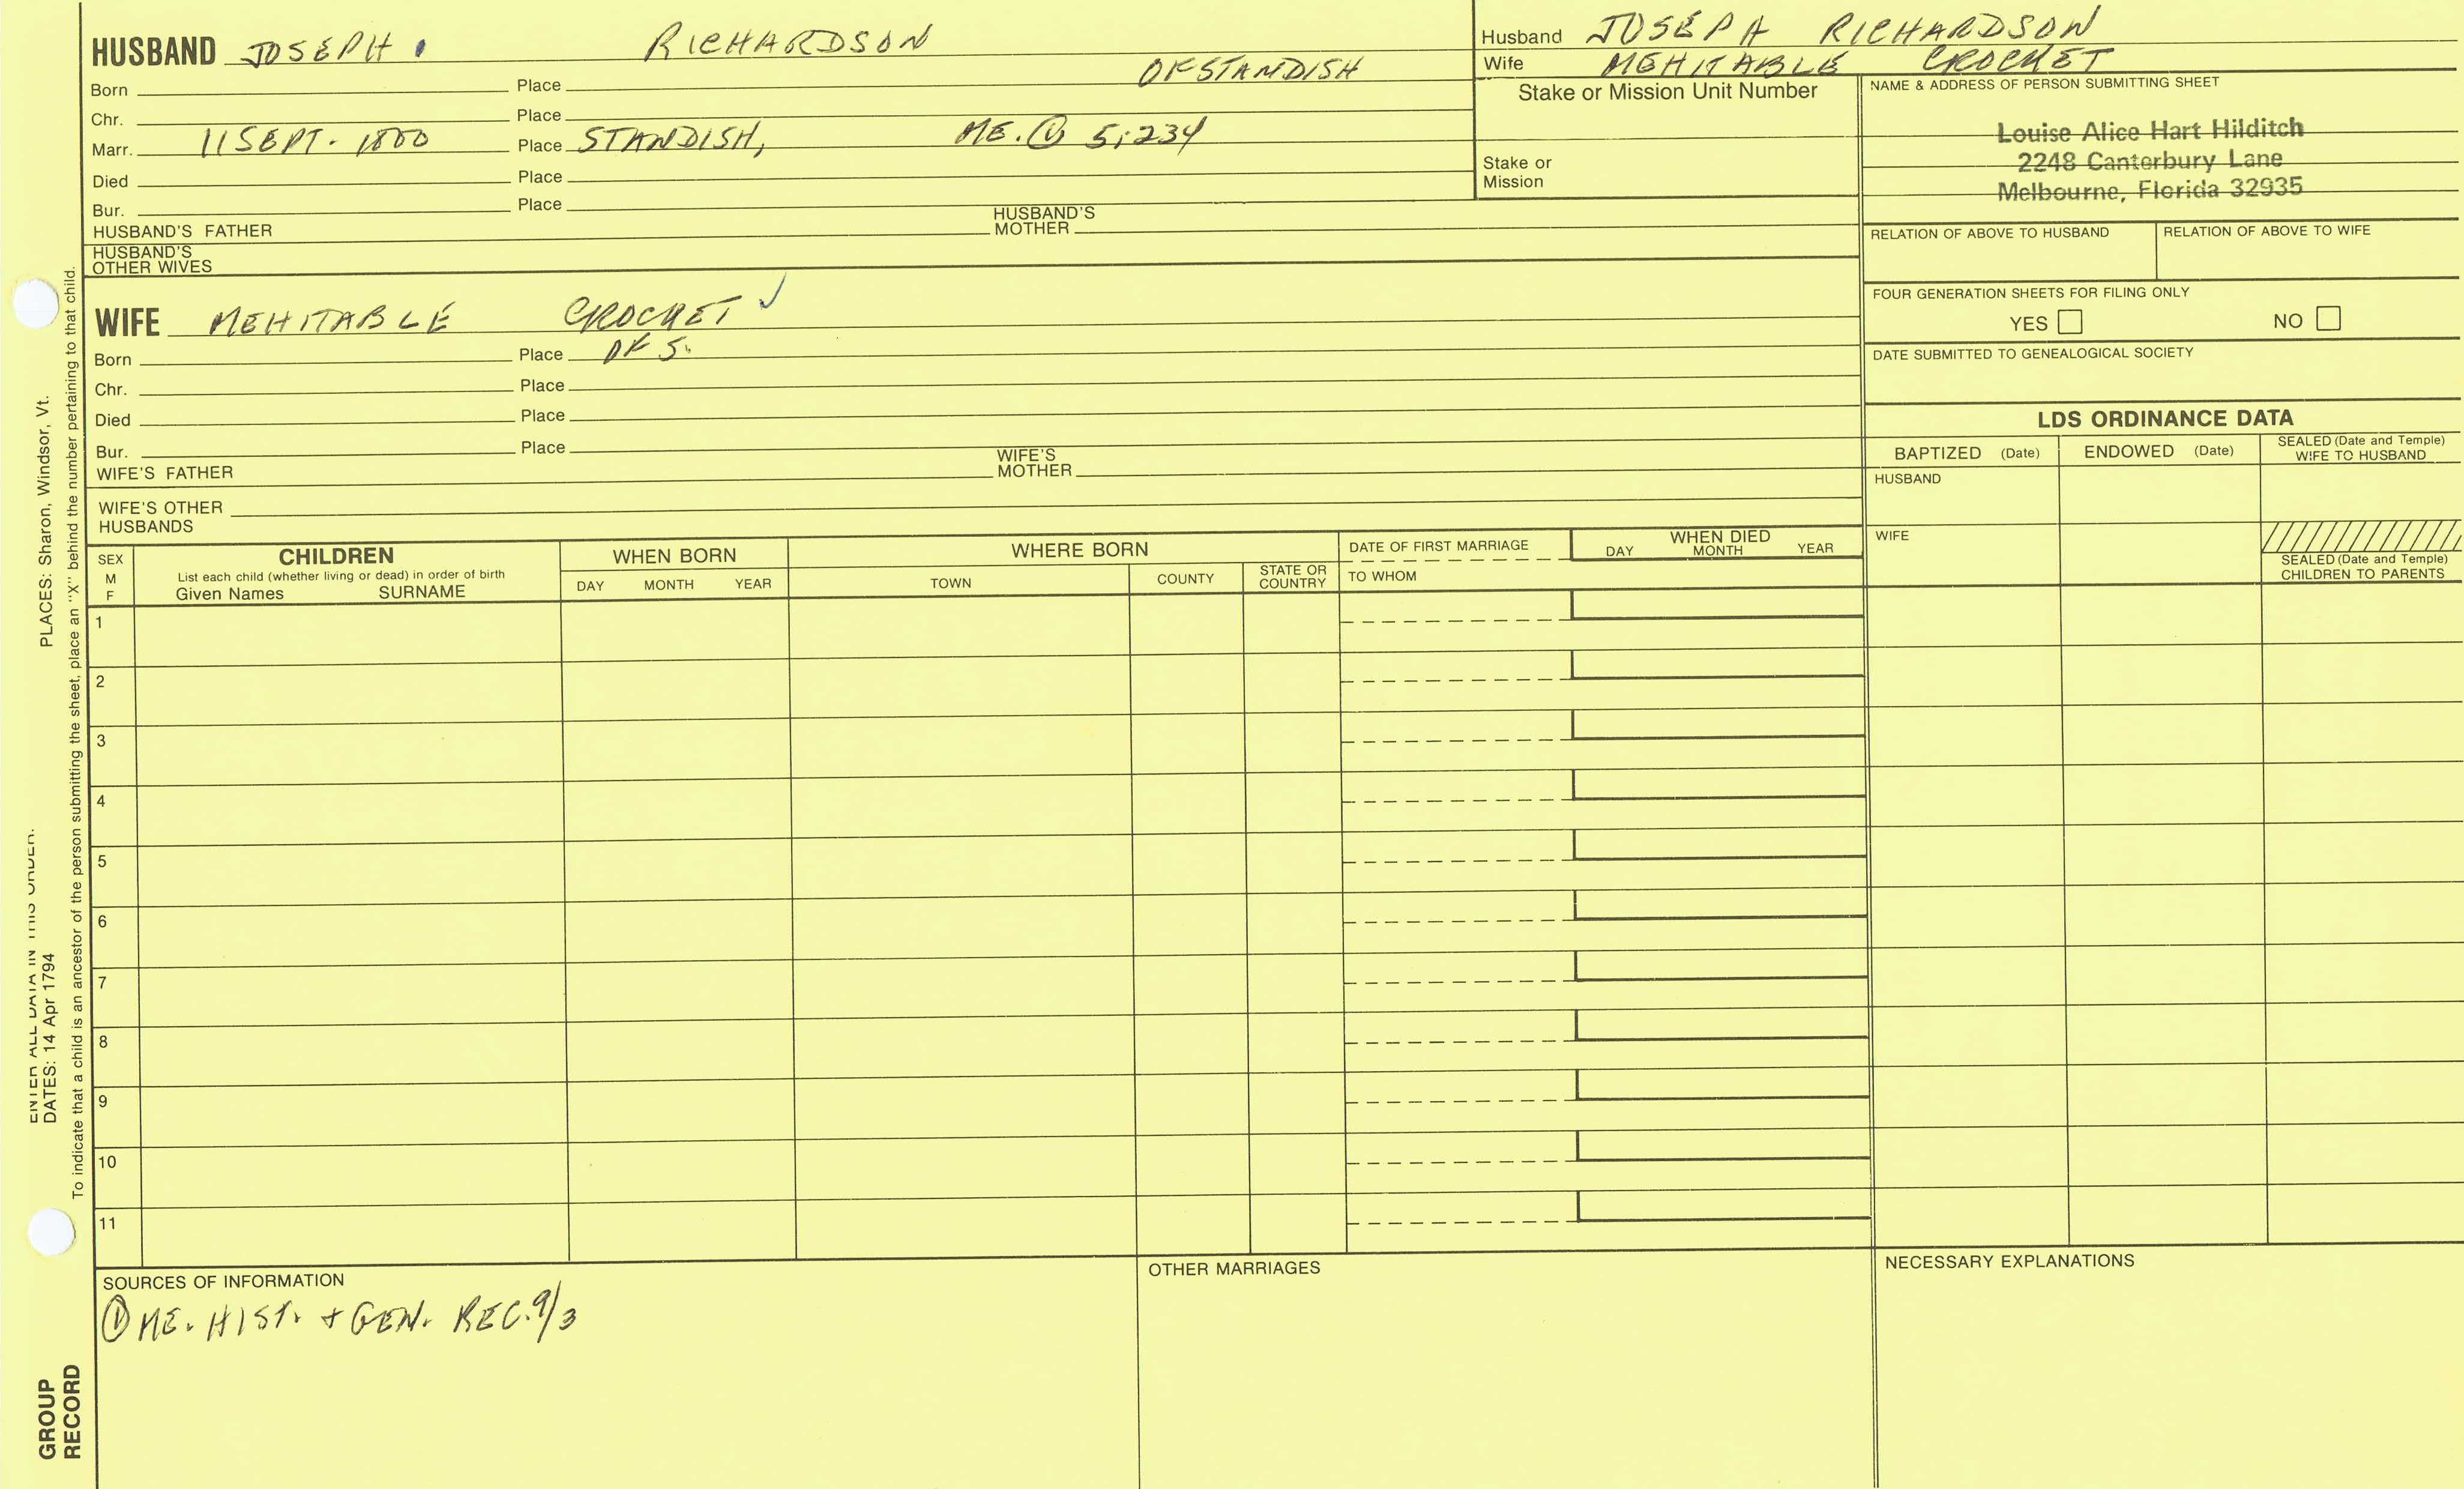 HUSBAND JOSEPH. RICHARDSON
OF STANDISH
Born Place
Chr. Place
Marr. 11 SEPT. 1800 Place STANDISH, ME. ① 5:234
Died Place
Bur. Place
HUSBAND'S FATHER HUSBAND'S MOTHER
HUSBAND'S OTHER WIVES
Husband JOSEPH RICHARDSON
Wife MEHITABLE CROCKET
Stake or Mission Unit Number
Stake or Mission
NAME & ADDRESS OF PERSON SUBMITTING SHEET
Louise Alice Hart Hilditch
2248 Canterbury Lane
Melbourne, Florida 32935
RELATION OF ABOVE TO HUSBAND RELATION OF ABOVE TO WIFE
FOUR GENERATION SHEETS FOR FILING ONLY
YES NO
DATE SUBMITTED TO GENEALOGICAL SOCIETY
WIFE MEHITABLE CROCKET ✓
Born Place OF S.
Chr. Place
Died Place
Bur. Place
WIFE'S FATHER WIFE'S MOTHER
WIFE'S OTHER HUSBANDS
LDS ORDINANCE DATA
BAPTIZED (Date) ENDOWED (Date) SEALED (Date and Temple) WIFE TO HUSBAND
HUSBAND
WIFE
SEALED (Date and Temple) CHILDREN TO PARENTS
SEX M F
CHILDREN
List each child (whether living or dead) in order of birth
Given Names SURNAME
WHEN BORN
DAY MONTH YEAR
WHERE BORN
TOWN COUNTY STATE OR COUNTRY
DATE OF FIRST MARRIAGE
TO WHOM
WHEN DIED
DAY MONTH YEAR
1
2
3
4
5
6
7
8
9
10
11
SOURCES OF INFORMATION
① ME. HIST. + GEN. REC. 9/3
OTHER MARRIAGES
NECESSARY EXPLANATIONS
ENTER ALL DATA IN THIS ORDER:
DATES: 14 Apr 1794 PLACES: Sharon, Windsor, Vt.
To indicate that a child is an ancestor of the person submitting the sheet, place an "X" behind the number pertaining to that child.
GROUP
RECORD